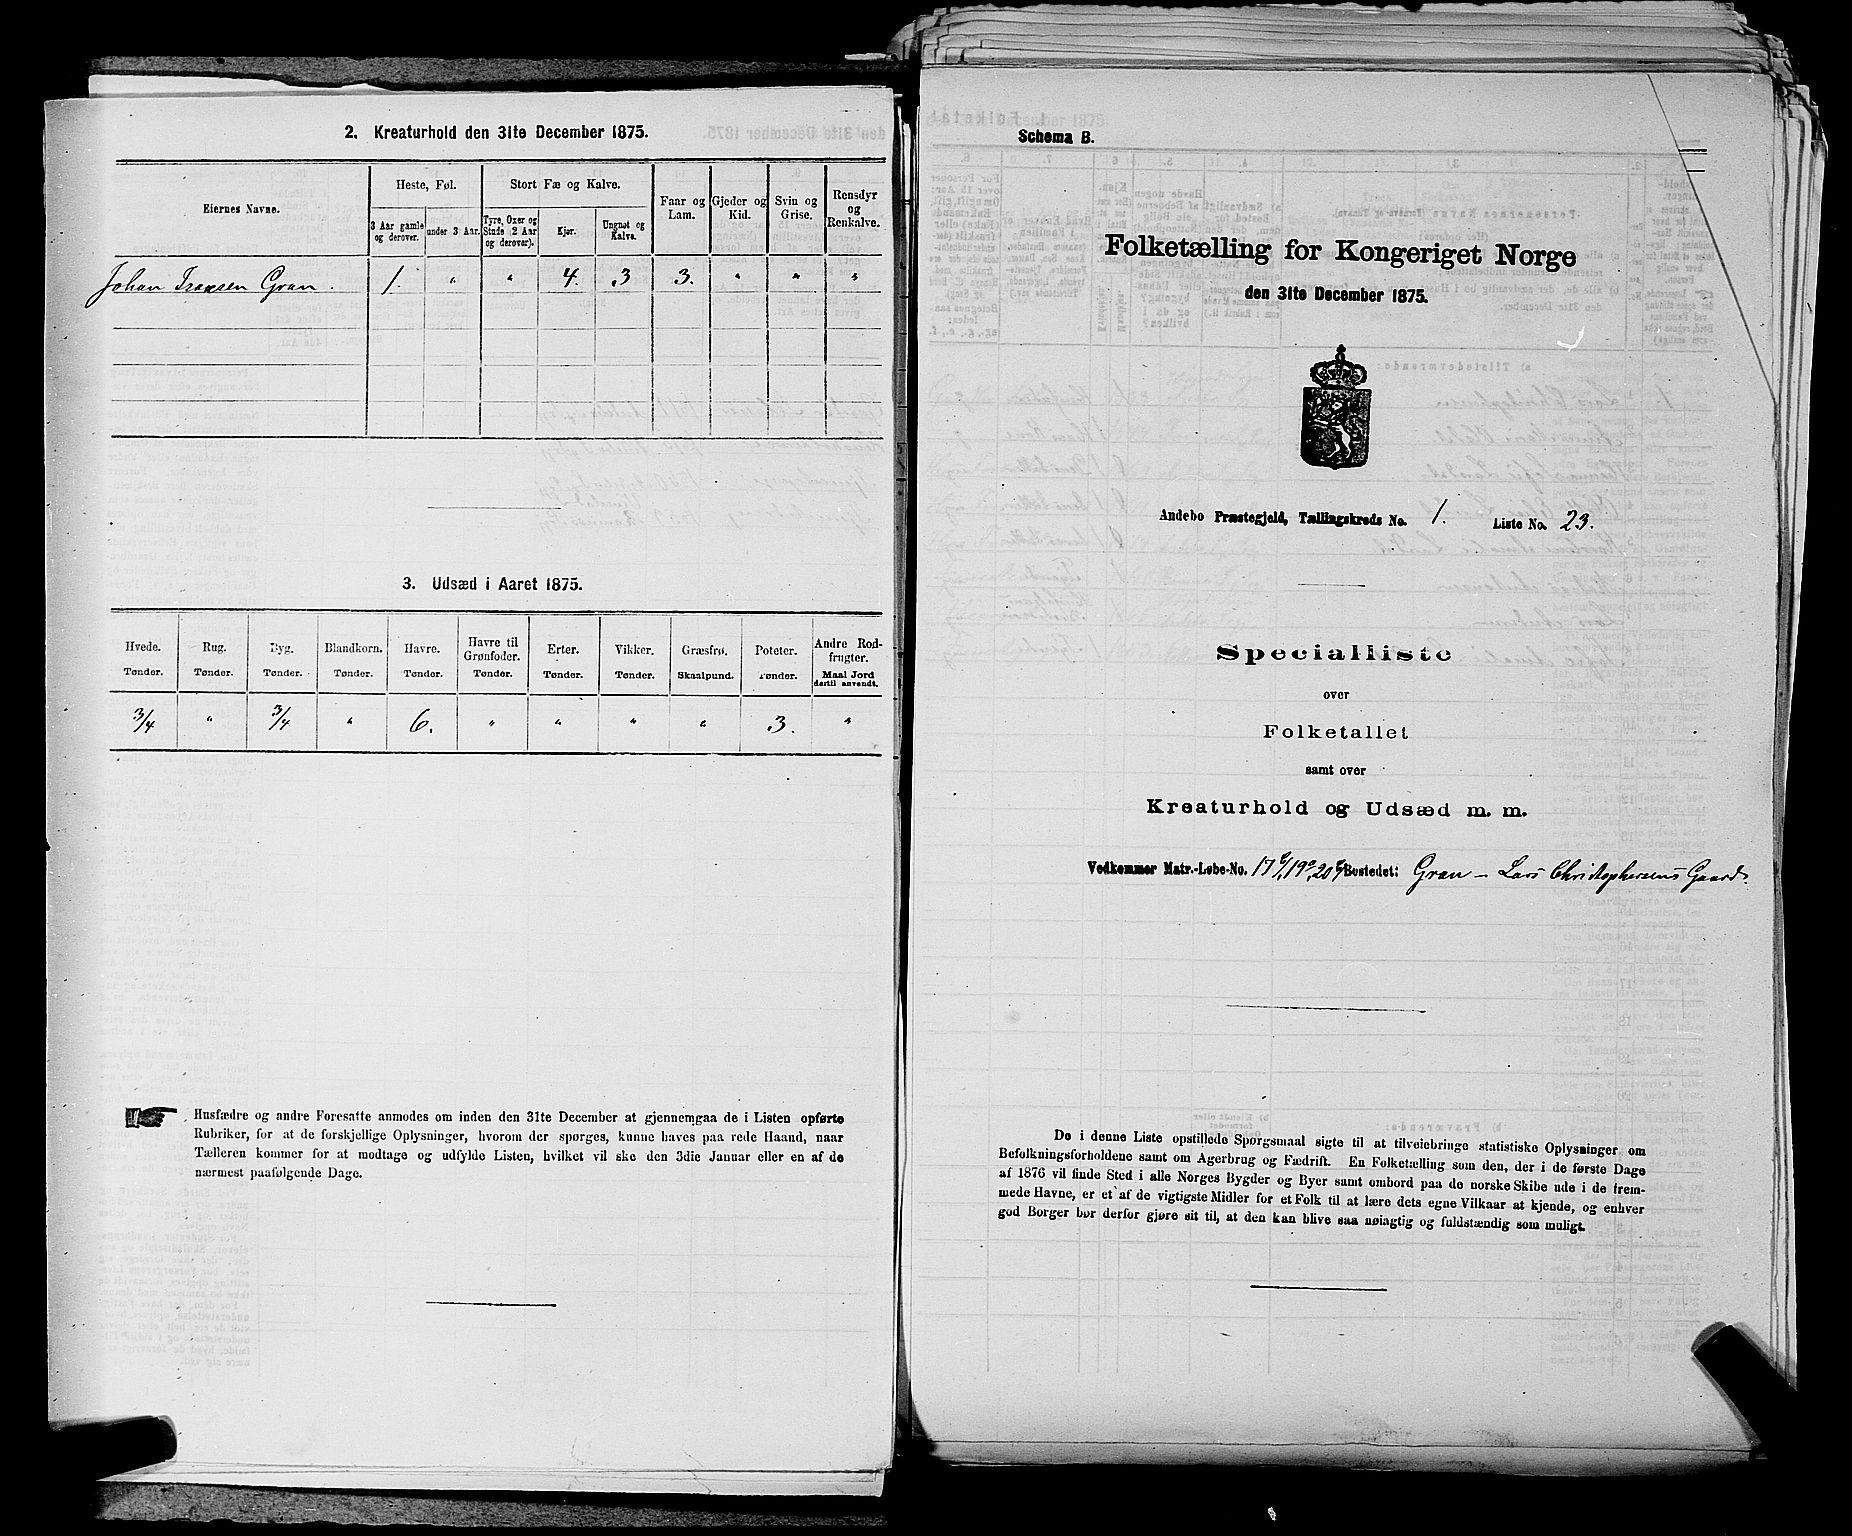 2. Kreaturhold den 31te December 1875.
Eiernes Navne.
Heste, Føl.
Stort Fæ og Kalve.
Faar og Lam.
Gjeder og Kid.
Svin og Grise.
Rensdyr og Renkalve.
3 Aar gamle og derover.
under 3 Aar.
Tyre, Oxer og Stude (2 Aar og derover).
Kjør.
Ungnøt og Kalve.
Johan Gran. 1. " " 4. 3 3. " " "
3. Udsæd i Aaret 1875.
Hvede. Rug. Byg. Blandkorn. Havre. Havre til Grønfoder. Erter. Vikker. Græsfrø. Poteter. Andre Rodfrugter.
Tønder. Tønder. Tønder. Tønder. Tønder. Tønder. Tønder. Tønder. Skaalpund. Tønder. Maal Jord dertil anvendt.
3/4 " 3/4 " 6. " " " " 3. "
Husfædre og andre Foresatte anmodes om inden den 31te December at gjennemgaa de i Listen opførte
Rubriker, for at de forskjellige Oplysninger, hvorom der spørges, kunne haves paa rede Haand, naar
Tælleren kommer for at modtage og udfylde Listen, hvilket vil ske den 3die Januar eller en af de
nærmest paafølgende Dage.
Schema B.
Folketælling for Kongeriget Norge
den 31te December 1875.
Andebo Præstegjeld, Tællingskreds No. 1. Liste No. 23.
Specialliste
over
Folketallet
samt over
Kreaturhold og Udsæd m. m.
Vedkommer Matr.-Løbe-No. Bostedet: Gran - Lars Christophersens Gaard.
De i denne Liste opstillede Spørgsmaal sigte til at tilveiebringe statistiske Oplysninger om
Befolkningsforholdene samt om Agerbrug og Fædrift. En Folketælling som den, der i de første Dage
af 1876 vil finde Sted i alle Norges Bygder og Byer samt ombord paa de norske Skibe ude i de frem-
mede Havne, er et af de vigtigste Midler for et Folk til at lære dets egne Vilkaar at kjende, og enhver
god Borger bør derfor gjøre sit til, at den kan blive saa nøiagtig og fuldstændig som muligt.